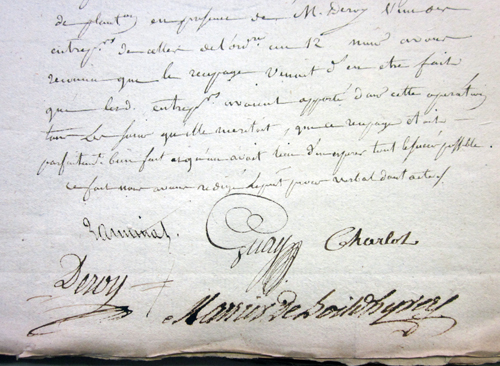 de plantᵒⁿ en presence de M. Deroy
entrepʳˢ de celles de l'ordʳᵉ an 12 nous avons
reconnu que le recepage venait d'en etre fait
que lesd. entrepʳˢ avaient apporté dans cette operation
tous les soins qu'elle meritait, que ce recepage etait
parfaitemᵗ bien fait et qu'on avait lieu d'en esperer tout le succès possible.
ce fait nous avons redigé le pnt procès verbal dont acte
Raminal.
Guay Charlot
Deroy